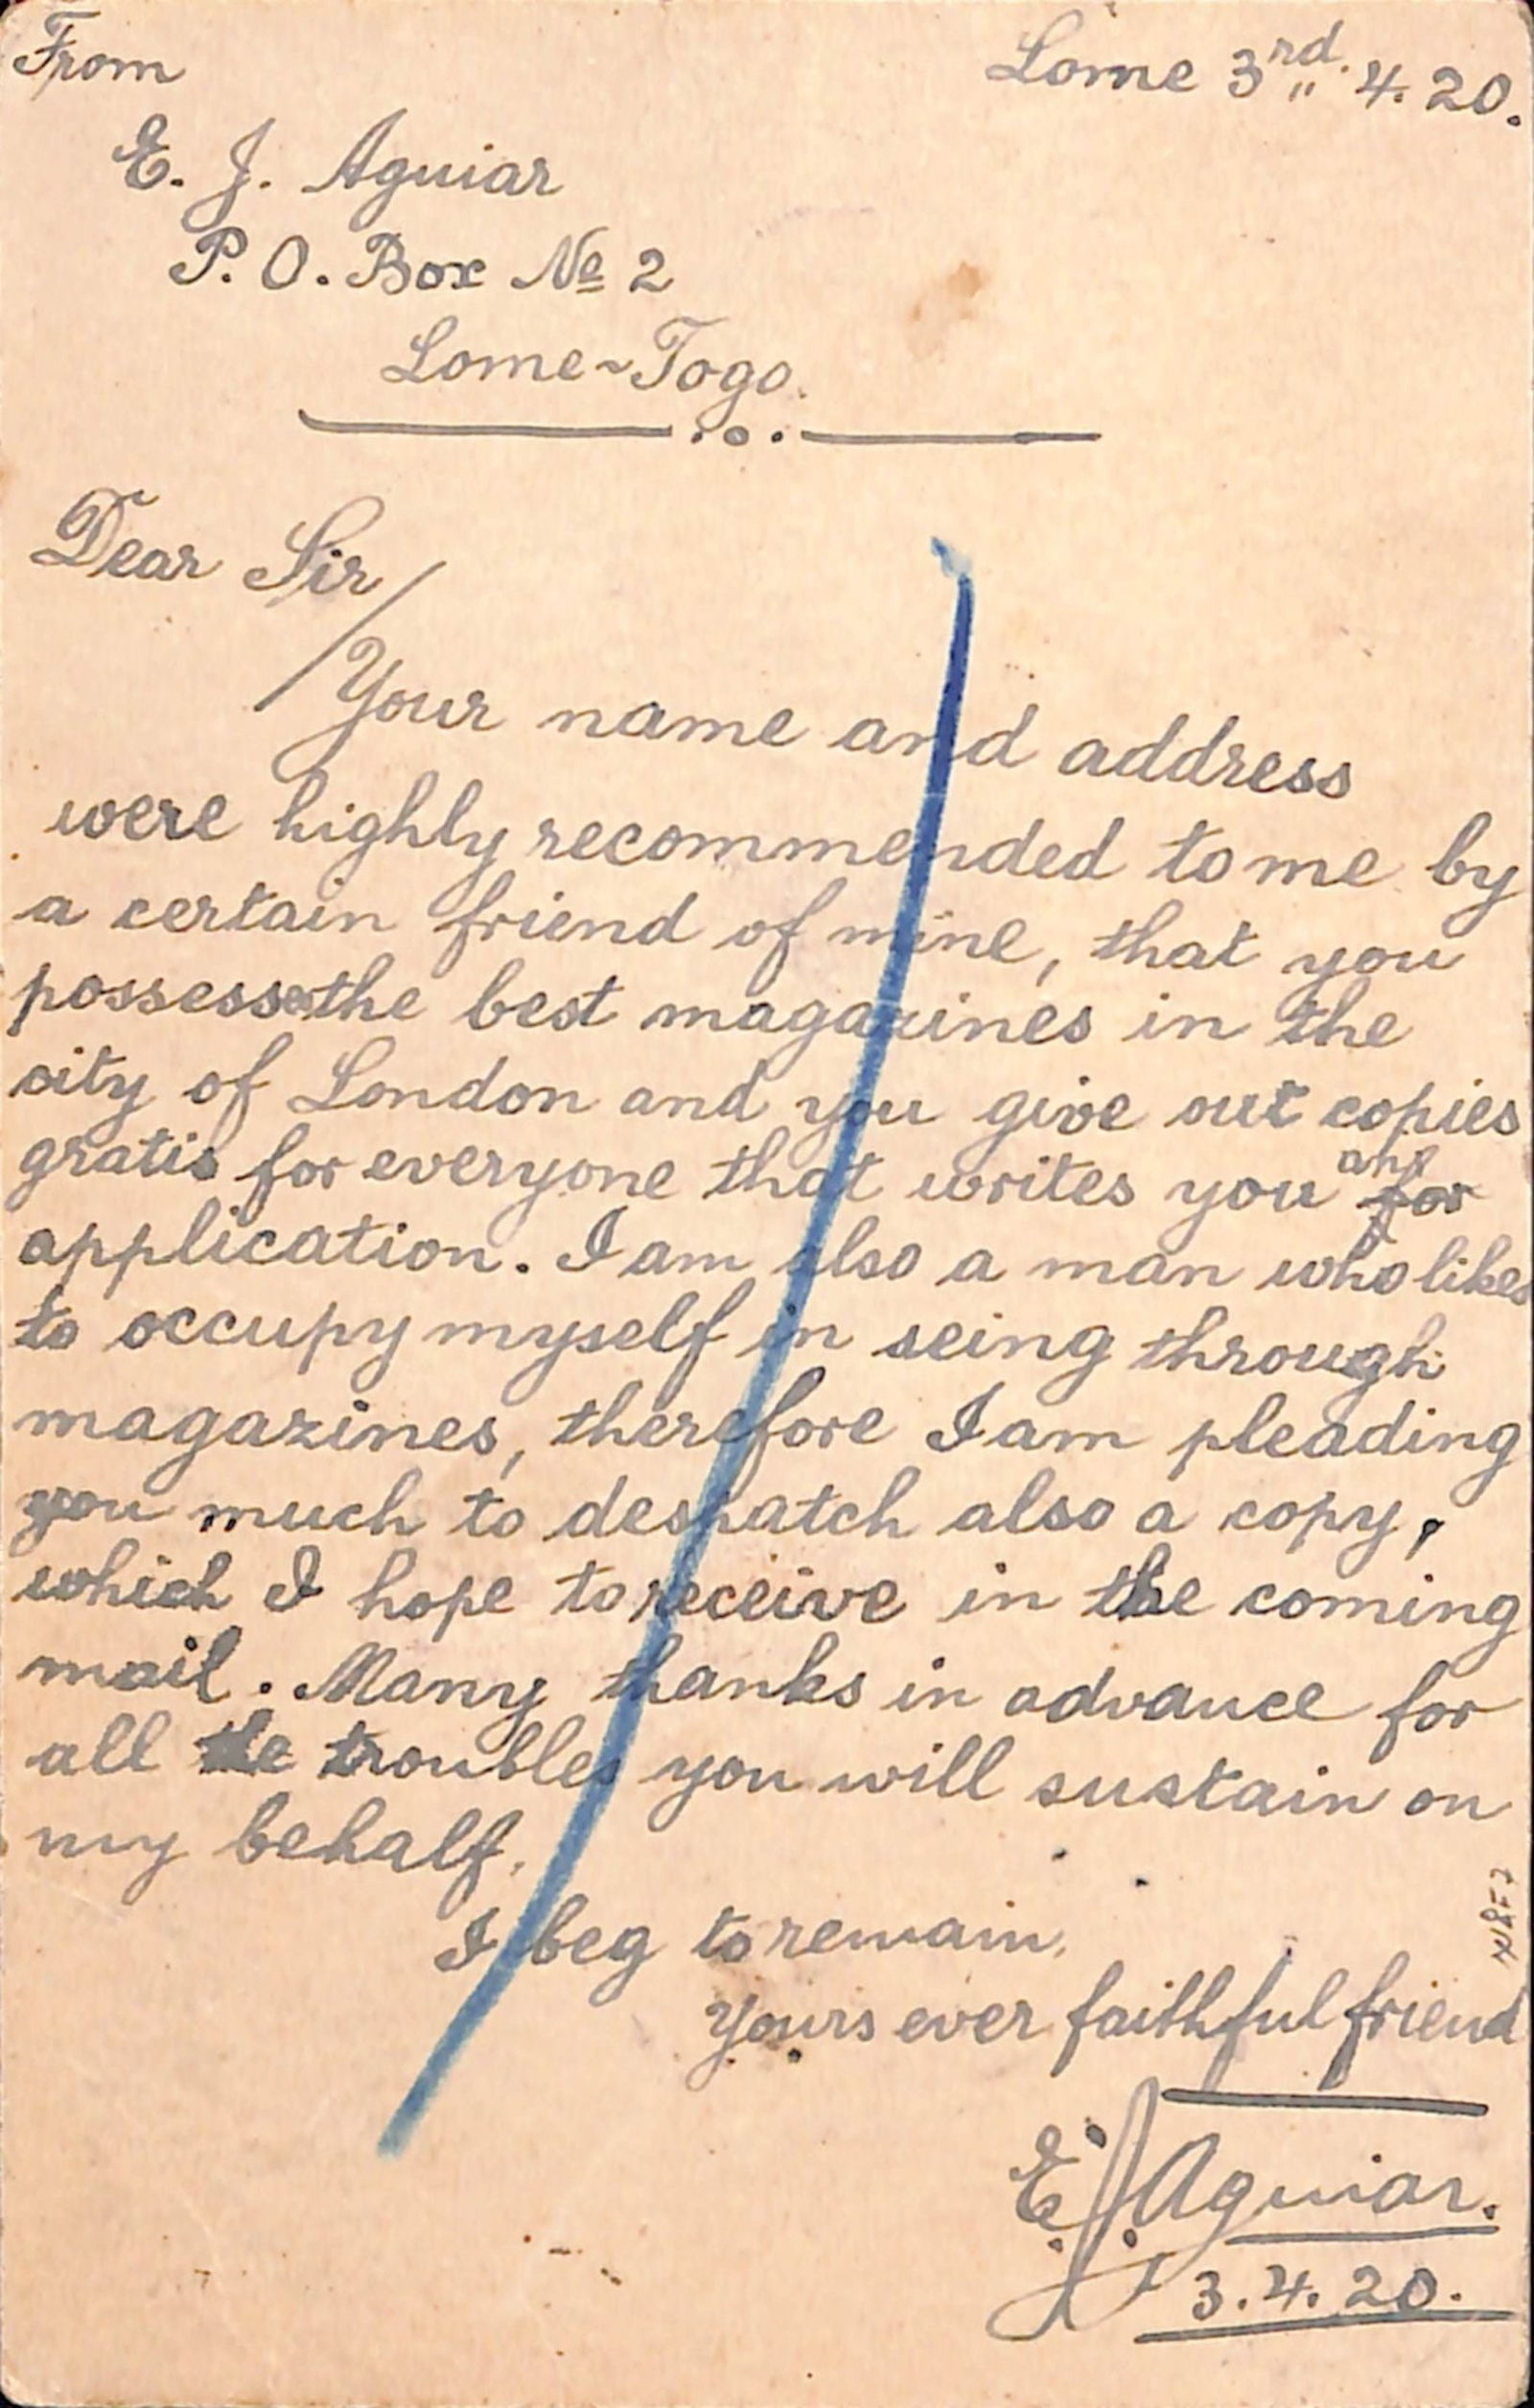 From
Lome 3rd. 4. 20.
E. J. Aguiar
P. O. Box No 2
Lome-Togo.
Dear Sir/
Your name and address
were highly recommended to me by
a certain friend of mine, that you
possess the best magazines in the
city of London and you give out copies
gratis for everyone that writes you an
application. I am also a man who likes
to occupy myself in seing through
magazines, therefore I am pleading
you much to despatch also a copy,
which I hope to receive in the coming
mail. Many thanks in advance for
all the troubles you will sustain on
my behalf.
I beg to remain,
Yours ever faithful friend
E. J. Aguiar.
3.4.20.